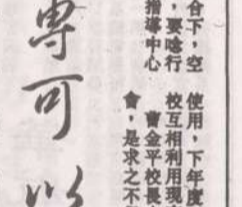 合下，空
，要唸行
指導中心
使用，下年度
校互相利用現
曹金平校長
會，是求之不
專可以